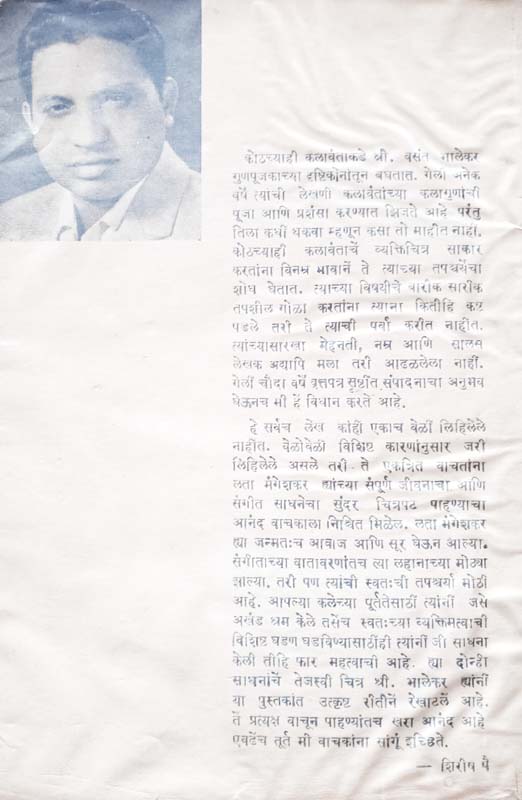 कोठच्याही कलावंताकडे श्री. वसंत भालेकर
गुणपूजकाच्या दृष्टिकोनांतून बघतात. गेली अनेक
वर्षें त्यांची लेखणी कलावंतांच्या कलागुणांची
पूजा आणि प्रशंसा करण्यात झिजते आहे परंतु
तिला कधीं थकवा म्हणून कसा तो माहीत नाही.
कोठच्याही कलावंताचें व्यक्तिचित्र साकार
करतांना विनम्र भावानें ते त्याच्या तपश्चर्येचा
शोध घेतात. त्याच्या विषयींचे बारीक सारीक
तपशील गोळा करतांना त्यांना कितीहि कष्ट
पडले तरी ते त्याची पर्वा करीत नाहींत.
त्यांच्यासारखा मेहनती, नम्र आणि
लेखक अद्यापि मला तरी आढळलेला नाहीं.
गेलीं चौदा वर्षें वृत्तपत्र सृष्टींत संपादनाचा अनुभव
घेऊनच मी हें विधान करते आहे.
हे सर्वच लेख कांही एकाच वेळीं लिहिलेले
नाहींत. वेळोवेळी विशिष्ट कारणांनुसार जरी
लिहिलेले असले तरी ते एकत्रित वाचतांना
लता मंगेशकर ह्यांच्या संपूर्ण जीवनाचा आणि
संगीत साधनेचा सुंदर चित्रपट पाहण्याचा
आनंद वाचकाला निश्चित मिळेल. लता मंगेशकर
ह्या जन्मतःच आवाज आणि सूर घेऊन आल्या.
संगीताच्या वातावरणांतच त्या लहानाच्या मोठ्या
झाल्या. तरी पण त्यांची स्वतःची तपश्चर्या मोठी
आहे. आपल्या कलेच्या पूर्ततेसाठीं त्यांनीं जसे
अखंड श्रम केले तसेंच स्वतःच्या व्यक्तिमत्वाची
विशिष्ट घडण घडविण्यासाठींही त्यांनीं जी साधना
केली तीहि फार महत्वाची आहे. ह्या दोन्ही
साधनांचें तेजस्वी चित्र श्री. भालेकर ह्यांनीं
या पुस्तकांत उत्कृष्ट रीतीनें रेखाटलें आहे.
तें प्रत्यक्ष वाचून पाहण्यांतच खरा आनंद आहे
एवढेंच तूर्त मी वाचकांना सांगूं इच्छिते.
— शिरीष पै